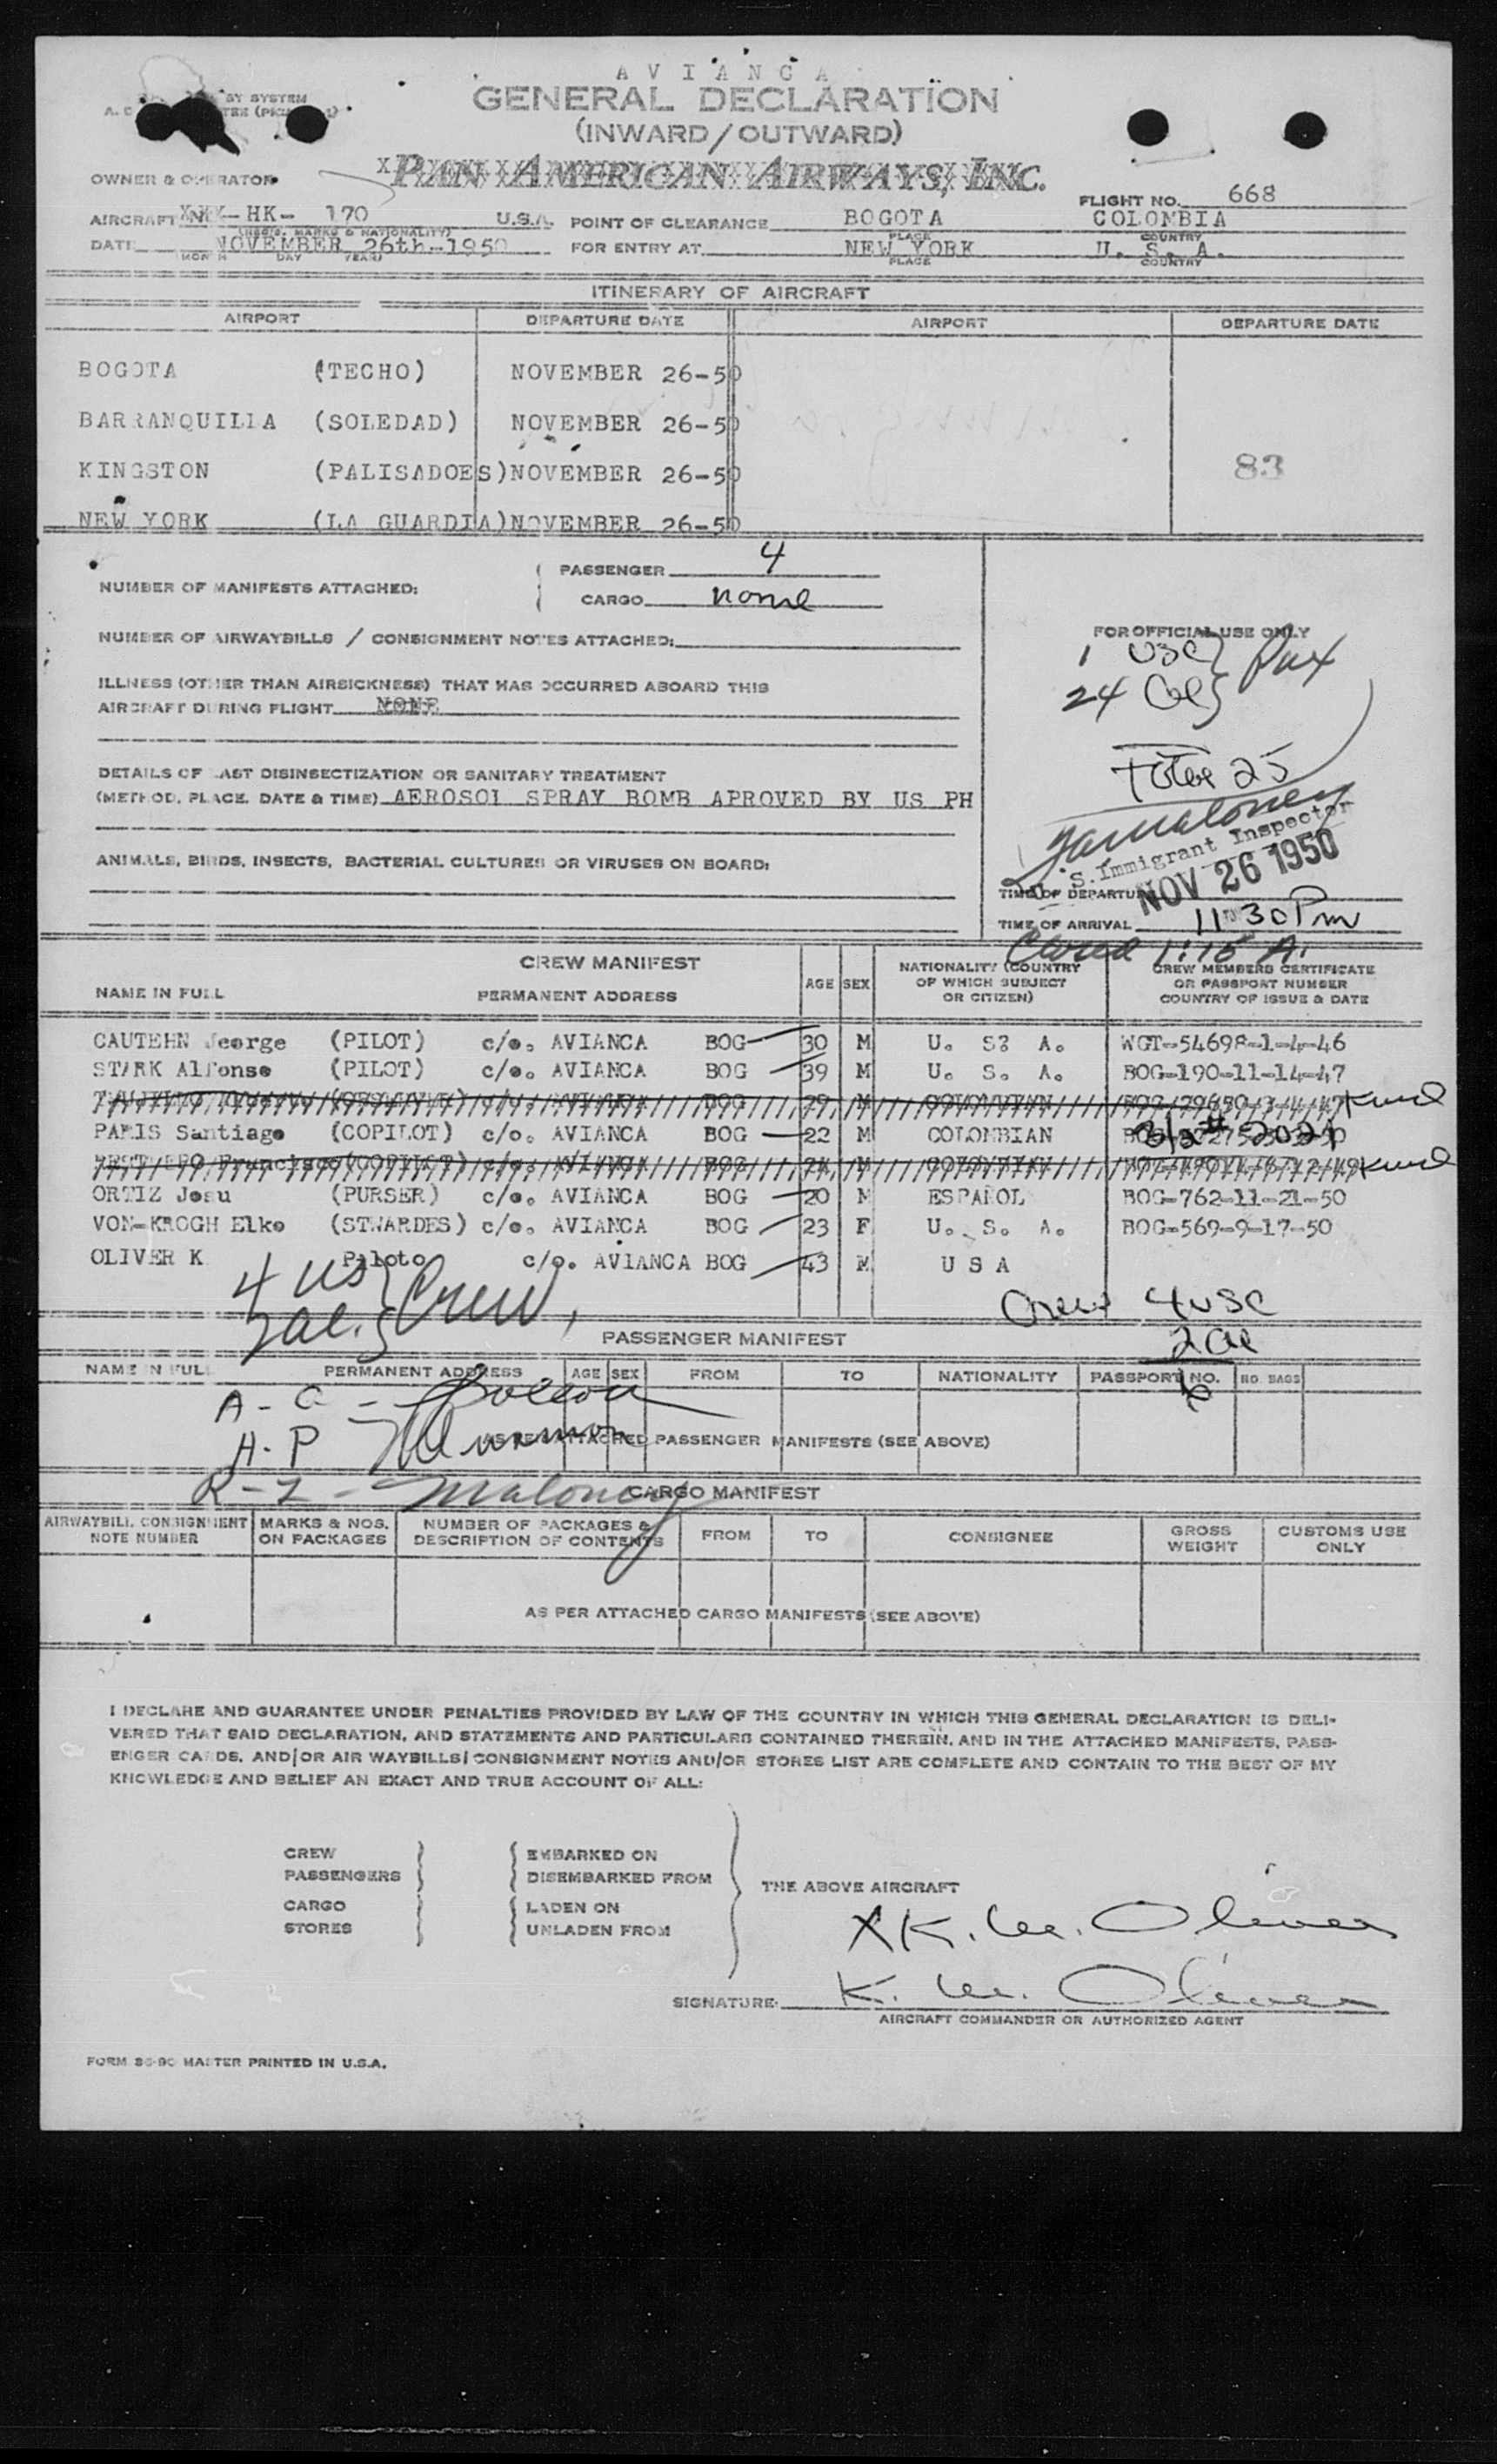 AVIANCA
GENERAL DECLARATION
(INWARD/OUTWARD)
BY SYSTEM
OWNER & OPERATOR PAN AMERICAN AIRWAYS, INC.
FLIGHT NO. 668
AIRCRAFT HK- 170 U.S.A. POINT OF CLEARANCE BOGOTA COLOMBIA
(REG'S. MARKS & NATIONALITY) PLACE COUNTRY
DATE NOVEMBER 26th-1950 FOR ENTRY AT NEW YORK U. S. A.
MONTH DAY YEAR PLACE COUNTRY
ITINERARY OF AIRCRAFT
AIRPORT DEPARTURE DATE AIRPORT DEPARTURE DATE
BOGOTA (TECHO) NOVEMBER 26-50
BARRANQUILLA (SOLEDAD) NOVEMBER 26-50
KINGSTON (PALISADOES) NOVEMBER 26-50
83
NEW YORK (LA GUARDIA) NOVEMBER 26-50
NUMBER OF MANIFESTS ATTACHED: PASSENGER 4
CARGO none
NUMBER OF AIRWAYBILLS / CONSIGNMENT NOTES ATTACHED:
FOR OFFICIAL USE ONLY
1 USC } Pax
24
ILLNESS (OTHER THAN AIRSICKNESS) THAT HAS OCCURRED ABOARD THIS
AIRCRAFT DURING FLIGHT NONE
Total 25
DETAILS OF LAST DISINSECTIZATION OR SANITARY TREATMENT
(METHOD, PLACE, DATE & TIME) AEROSOL SPRAY BOMB APROVED BY US PH
U.S. Immigrant Inspector
NOV 26 1950
ANIMALS, BIRDS, INSECTS, BACTERIAL CULTURES OR VIRUSES ON BOARD:
TIME OF DEPARTURE
TIME OF ARRIVAL 11 30 Pm
1:15 A.
CREW MANIFEST
NAME IN FULL PERMANENT ADDRESS AGE SEX NATIONALITY (COUNTRY OF WHICH SUBJECT OR CITIZEN) CREW MEMBERS CERTIFICATE OR PASSPORT NUMBER COUNTRY OF ISSUE & DATE
CAUTEHN Jeorge (PILOT) c/o. AVIANCA BOG 30 M U. S? A. WGT-54698-1-4-46
STARK Alfonse (PILOT) c/o. AVIANCA BOG 39 M U. S. A. BOG-190-11-14-47
PARIS Santiago (COPILOT) c/o. AVIANCA BOG 22 M COLOMBIAN
ORTIZ Josu (PURSER) c/o. AVIANCA BOG 20 M ESPAÑOL BOG-762-11-21-50
VON-KROGH Elke (STWARDES) c/o. AVIANCA BOG 23 F U. S. A. BOG-569-9-17-50
OLIVER K Piloto c/o. AVIANCA BOG 43 M U S A
4 US } Crew,
Crew 4 USC
PASSENGER MANIFEST
NAME IN FULL PERMANENT ADDRESS AGE SEX FROM TO NATIONALITY PASSPORT NO. NO. BAGS
AS PER ATTACHED PASSENGER MANIFESTS (SEE ABOVE)
Maloney
CARGO MANIFEST
AIRWAYBILL CONSIGNMENT NOTE NUMBER MARKS & NOS. ON PACKAGES NUMBER OF PACKAGES & DESCRIPTION OF CONTENTS FROM TO CONSIGNEE GROSS WEIGHT CUSTOMS USE ONLY
AS PER ATTACHED CARGO MANIFESTS (SEE ABOVE)
I DECLARE AND GUARANTEE UNDER PENALTIES PROVIDED BY LAW OF THE COUNTRY IN WHICH THIS GENERAL DECLARATION IS DELI-
VERED THAT SAID DECLARATION, AND STATEMENTS AND PARTICULARS CONTAINED THEREIN, AND IN THE ATTACHED MANIFESTS, PASS-
ENGER CARDS, AND/OR AIR WAYBILLS/CONSIGNMENT NOTES AND/OR STORES LIST ARE COMPLETE AND CONTAIN TO THE BEST OF MY
KNOWLEDGE AND BELIEF AN EXACT AND TRUE ACCOUNT OF ALL:
CREW EMBARKED ON
PASSENGERS DISEMBARKED FROM
THE ABOVE AIRCRAFT
CARGO LADEN ON
STORES UNLADEN FROM
X K. W. Oliver
SIGNATURE: K. W. Oliver
AIRCRAFT COMMANDER OR AUTHORIZED AGENT
FORM 86-90 MASTER PRINTED IN U.S.A.